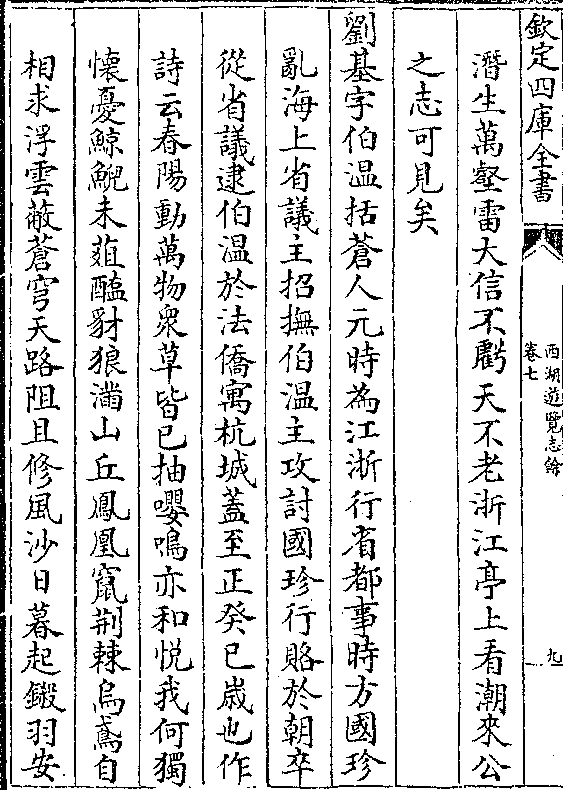 欽定四庫全書
西湖遊覽志餘
卷七
九
潛生萬壑雷大信不虧天不老浙江亭上看潮來公
之志可見矣
劉基字伯温括蒼人元時為江浙行省都事時方國珍
亂海上省議主招撫伯温主攻討國珍行賂於朝卒
從省議逮伯温於法僑寓杭城蓋至正癸巳嵗也作
詩云春陽動萬物衆草皆已抽嚶鳴亦和悅我何獨
懐憂鯨鯢未葅醢豺狼滿山丘鳳凰竄荆棘烏鳶自
相求浮雲蔽蒼穹天路阻且修風沙日暮起鎩羽安